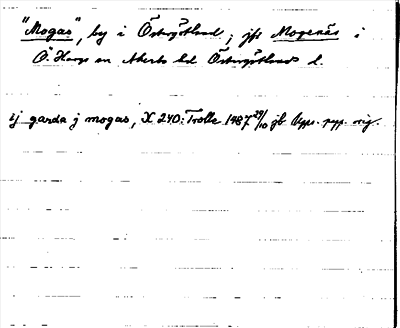 "Mogas", by i Östergötland; jfr Mogenäs i
Ö. Harge sn Akerbo hd Östergötlands l.
ij garda j mogas, X 240: Trolle 1487 29/10 jb Upps. pap. orig.